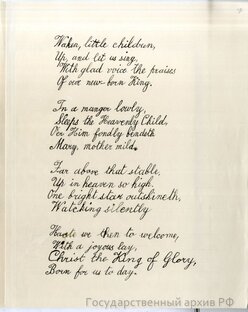 Waken, little children,
Up, and let us sing,
With glad voice the praises
Of our new-born King.
In a manger lowly,
Sleeps the Heavenly Child,
O'er Him fondly bendeth
Mary, mother mild.
Far above that stable,
Up in heaven so high,
One bright star outshineth,
Watching silently
Haste we then to welcome,
With a joyous lay,
Christ the King of Glory,
Born for us to day.
Государственный архив РФ